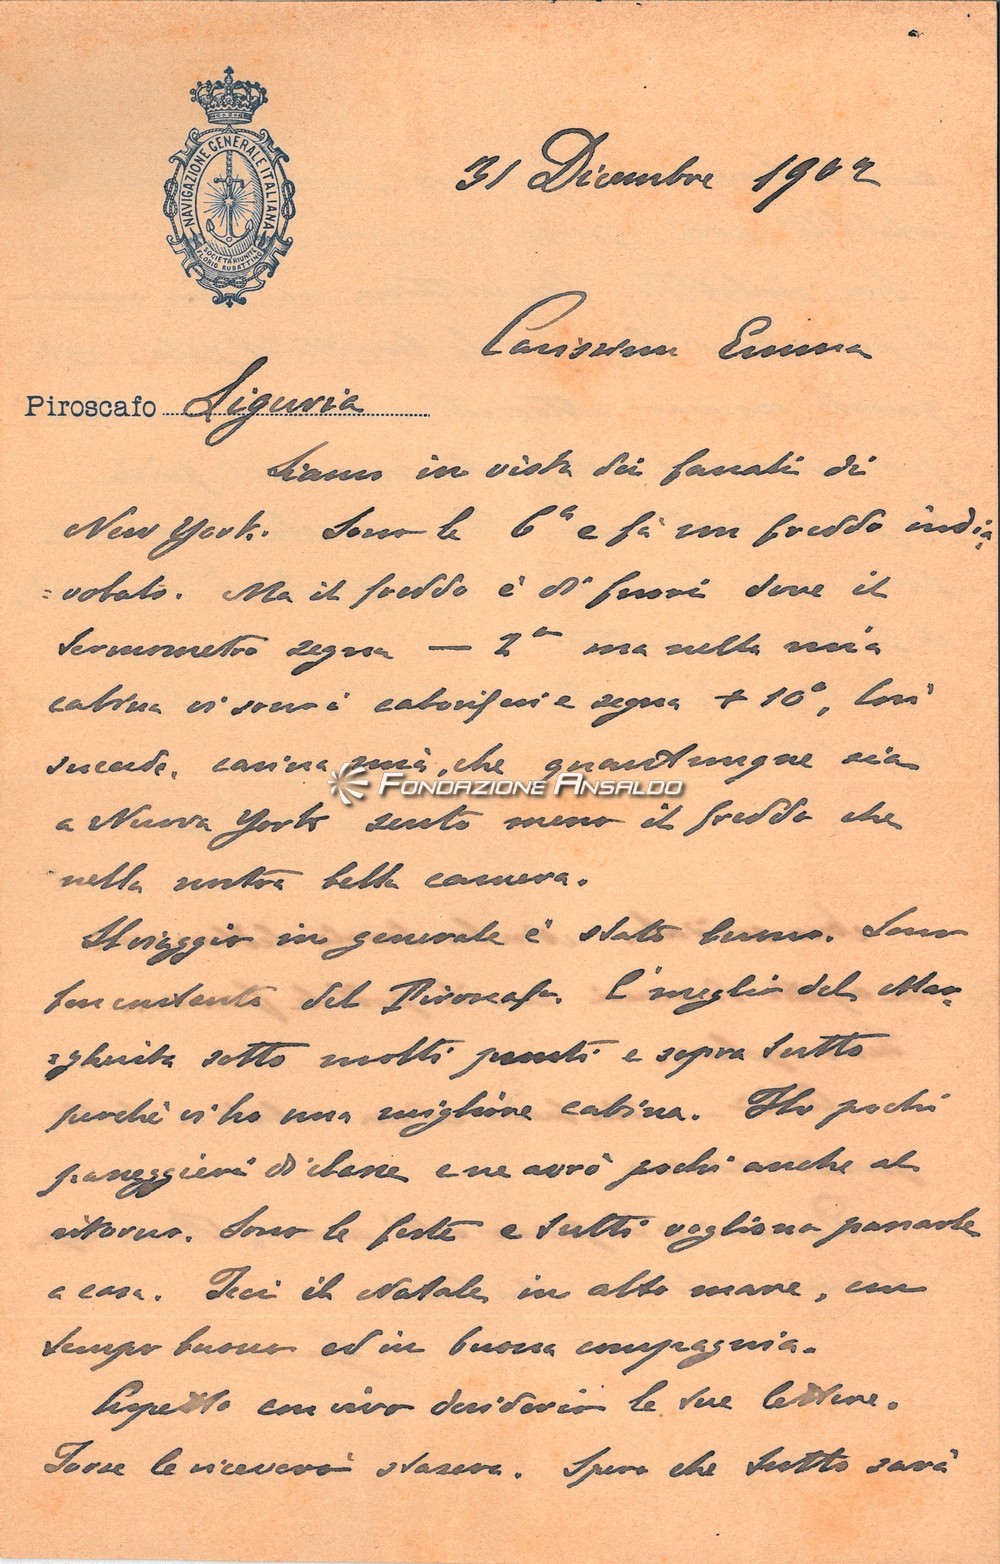 NAVIGAZIONE GENERALE ITALIANA
SOCIETÀ RIUNITE
FLORIO RUBATTINO
31 Dicembre 1902
Carissima Emma
Piroscafo Liguria
Siamo in vista dei fanali di
New York. Sono le 6ª e fà un freddo india
=volato. Ma il freddo è di fuori dove il
termometro segna — 2° ma nella mia
cabina vi sono i caloriferi e segna + 10°, Così
succede, carina mia, che quantunque sia
FONDAZIONE ANSALDO
a Nuova York sento meno il freddo che
nella nostra bella camera.
Il viaggio in generale è stato buono. Sono
contento del Piroscafo. È meglio del Mar=
=gherita sotto molti punti e sopra tutto
perchè vi ho una migliore cabina. Ho pochi
passeggieri di classe e ne avrò pochi anche al
ritorno. Sono le feste e tutti vogliono passarle
a casa. Feci il Natale in alto mare, con
tempo buono ed in buona compagnia.
Aspetto con vivo desiderio le tue lettere.
Forse le riceverò stasera. Spero che tutto sarà